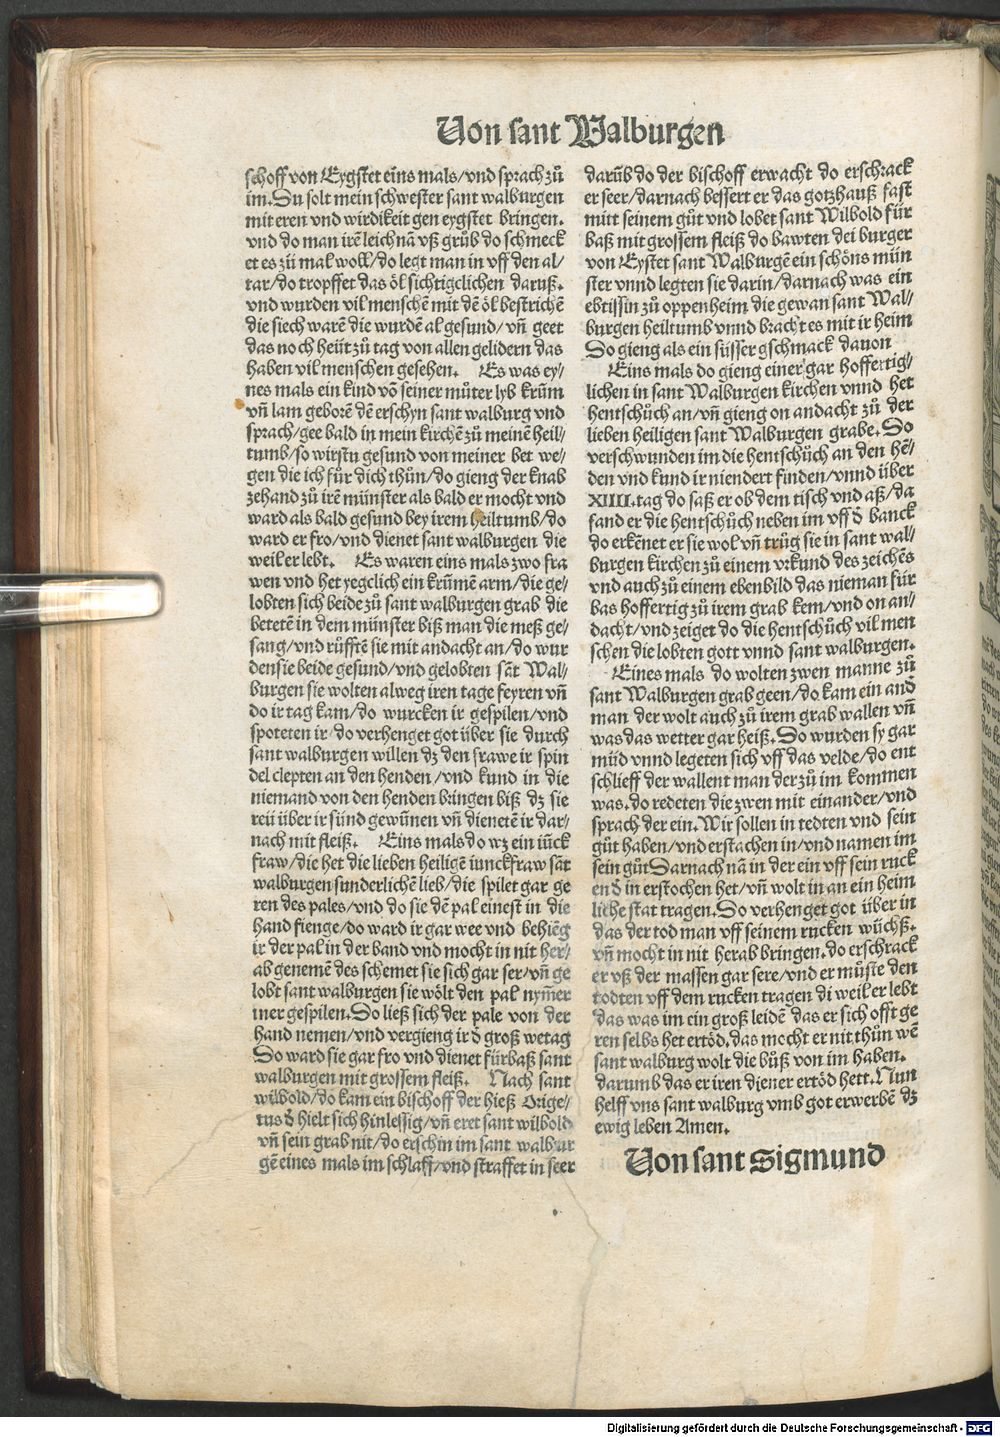 Von sant Walburgen
schoff von Eygstet eins mals/vnd sprach zů
im. Du solt mein schwester sant walburgen
mit eren vnd wirdikeit gen eygstet bringen.
vnd do man irē leichnā vß grůb do schmeck
et es zů mal woll/do legt man in vff den al⸗
tar/do tropffet das öl sichtigclichen daruß.
vnd wurden vil menschē mit dē öl bestrichē
die siech warē die wurdē al gesund/vn̄ geet
das noch heüt zů tag von allen gelidern das
haben vil menschen gesehen. Es was ey⸗
nes mals ein kind vō seiner můter lyb krům
vn̄ lam geborē dē erschyn sant walburg vnd
sprach/gee bald in mein kirchē zů meinē heil⸗
tumb/so wirstu gesund von meiner bet we⸗
gen die ich für dich thůn/do gieng der knab
zehand zů irē münster als bald er mocht vnd
ward als bald gesund bey irem heiltumb/do
ward er fro/vnd dienet sant walburgen die
weil er lebt. Es waren eins mals zwo fra
wen vnd het yegclich ein krūmē arm/die ge⸗
lobten sich beide zů sant walburgen grab die
betetē in dem münster biß man die meß ge⸗
sang/vnd růfftē sie mit andacht an/do wur
den sie beide gesund/vnd gelobten sāt Wal⸗
burgen sie wolten alweg iren tage feyren vn̄
do ir tag kam/do wurcken ir gespilen/vnd
spoteten ir/do verhenget got über sie durch
sant walburgen willen dz den frawe ir spin
del clepten an den henden/vnd kund in die
niemand von den henden bringen biß dz sie
reü über ir sünd gewūnen vn̄ dienetē ir dar⸗
nach mit fleiß. Eins mals do wz ein iūck
fraw/die het die lieben heiligē iunckfraw sāt
walburgen sunderlichē lieb/die spilet gar ge
ren des pales/vnd do sie dē pal einest in die
hand fienge/do ward ir gar wee vnd behieg
ir der pal in der band vnd mocht in nit her⸗
ab genemē des schemet sie sich gar ser/vn̄ ge
lobt sant walburgen sie wölt den pal nym̄er
mer gespilen. Do ließ sich der pale von der
hand nemen/vnd vergieng ir đ groß wetag
Do ward sie gar fro vnd dienet fürbaß sant
walburgen mit grossem fleiß. Nach sant
wilbold/do kam ein bischoff der hieß Orige⸗
tus đ hielt sich hinlessig/vn̄ eret sant wilbold
vn̄ sein grab nit/do erschin im sant walbur
gē eines mals im schlaff/vnd straffet in seer
darūb do der bischoff erwacht do erschrack
er seer/darnach bessert er das gotzhauß fast
mitt seinem gůt vnd lobet sant Wilbold für
baß mit grossem fleiß do bawten dei burger
von Eystet sant Walburgē ein schöns mün
ster vnnd legten sie darin/darnach was ein
ebtissin zů oppenheim die gewan sant Wal⸗
burgen heiltumb vnnd bracht es mit ir heim
Do gieng als ein süsser gschmack dauon
Eins mals do gieng einer gar hoffertig⸗
lichen in sant Walburgen kirchen vnnd het
hentschůch an/vn̄ gieng on andacht zů der
lieben heiligen sant Walburgen grabe. Do
verschwunden im die hentschůch an den hē⸗
den vnd kund ir niendert finden/vnnd über
XIIII.tag do saß er ob dem tisch vnd aß/da
fand er die hentschůch neben im vff đ banck
do erkēnet er sie wol vn̄ trůg sie in sant wal⸗
burgen kirchen zů einem vrkund des zeichēs
vnd auch zů einem ebenbild das nieman für
bas hoffertig zů irem grab kem/vnd on an⸗
dacht/vnd zeiget do die hentschůch vil men
schen die lobten gott vnnd sant walburgen.
Eines mals do wolten zwen manne zů
sant Walburgen grab geen/do kam ein and
man der wolt auch zů irem grab wallen vn̄
was das wetter gar heiß. Do wurden sy gar
müd vnnd legeten sich vff das velde/do ent
schlieff der wallent man der zů im kommen
was. do redeten die zwen mit einander/vnd
sprach der ein. Wir sollen in tedten vnd sein
gůt haben/vnd erstachen in/vnd namen im
sein gůt Darnach nā in der ein vff sein ruck
en đ in erstochen het/vn̄ wolt in an ein heim
liche stat tragen. Do verhenget got über in
das der tod man vff seinem rucken wůchß.
vn̄ mocht in nit herab bringen. do erschrack
er vß der massen gar sere/vnd er můste den
todten vff dem rucken tragen di weil er lebt
das was im ein groß leidē das er sich offt ge
ren selbs het ertöd. das mocht er nit thůn wē
sant walburg wolt die bůß von im haben.
darumb das er iren diener ertöd hett. Nun
helff vns sant walburg vmb got erwerbē dz
ewig leben Amen.
Von sant Sigmund
Digitalisierung gefördert durch die Deutsche Forschungsgemeinschaft - DFG